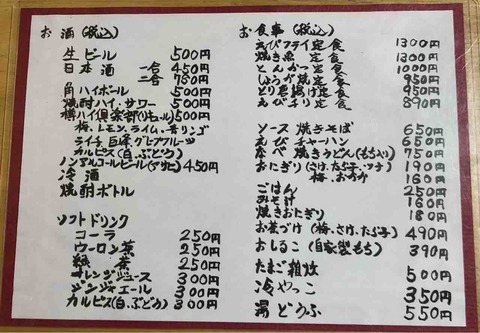 お酒(税込)
生ビール 500円
日本酒 一合 450円
二合 780円
角ハイボール 500円
焼酎ハイ・サワー 500円
樽ハイ倶楽部(リキュール) 500円
梅、レモン、ライム、青リンゴ
ライチ 巨峰 グレプフルーツ
カルピス(白、ぶどう)
ノンアルコールビール(アサヒ) 450円
冷酒
焼酎ボトル
ソフトドリンク
コーラ 250円
ウーロン茶 250円
緑茶 250円
オレンジジュース 300円
ジンジャエール 300円
カルピス(白、ぶどう) 300円
お食事(税込)
えびフライ定食 1300円
焼き魚定食 1300円
とんかつ定食 1000円
しょうが焼定食 950円
とり唐揚げ定食 950円
えびチリ定食 890円
ソース焼きそば 650円
えびチャーハン 650円
なべ焼きうどん(もち入り) 750円
おにぎり(さけ、たらこ、ツナ) 190円
梅、おかか 160円
ごはん 250円
みそ汁 160円
焼きおにぎり 180円
お茶づけ(梅、さけ、たらこ) 490円
おしるこ(自家製もち) 390円
たまご雑炊 500円
冷やっこ 350円
湯どうふ 550円